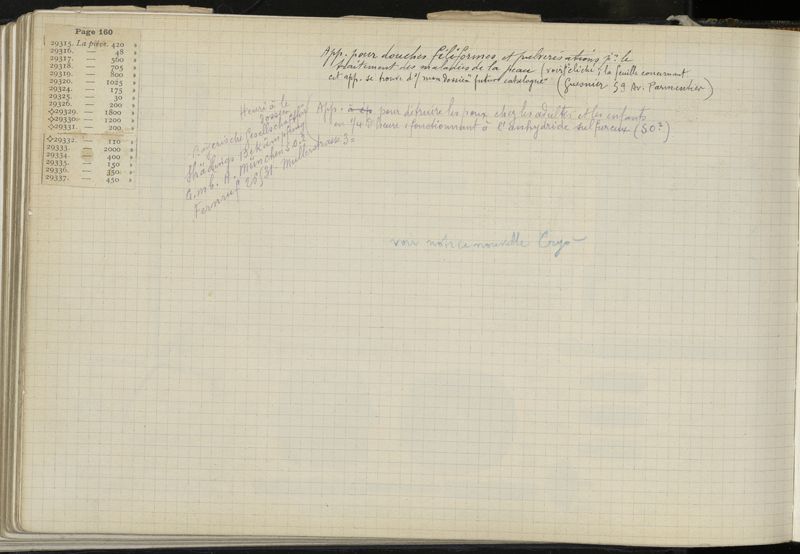 Page 160
29315. La pièce. 420 »
29316. — 48 »
29317. — 560 »
29318. — 705 »
29319. — 800 »
29320. — 1025 »
29324. — 175 »
29325. — 30 »
29326. — 200 »
29329. — 1800 »
29330. — 1200 »
29331. — 200 »
29332. — 110 »
29333. — 2000 »
29334. 400 »
29335. — 150 »
29336. — 350 »
29337. — 450 »
App. pour douches filiformes et pulvérisations pr le
traitement des maladies de la peau (voir cliché s/ la feuille concernant
cet app. se trouve ds/ mon dossier "futur catalogue" (Guesnier 59 Av. Parmentier)
App. pour détruire les poux chez les adultes et les enfants
en 1/4 d'heure fonctionnant à l'anhydride sulfureux (SO2)
dossier
Gesellschaft
Schädlings Bekämpfung
G.m.b.H. München
Fernruf Mullerstrasse 3
voir notice nouvelle Cryo